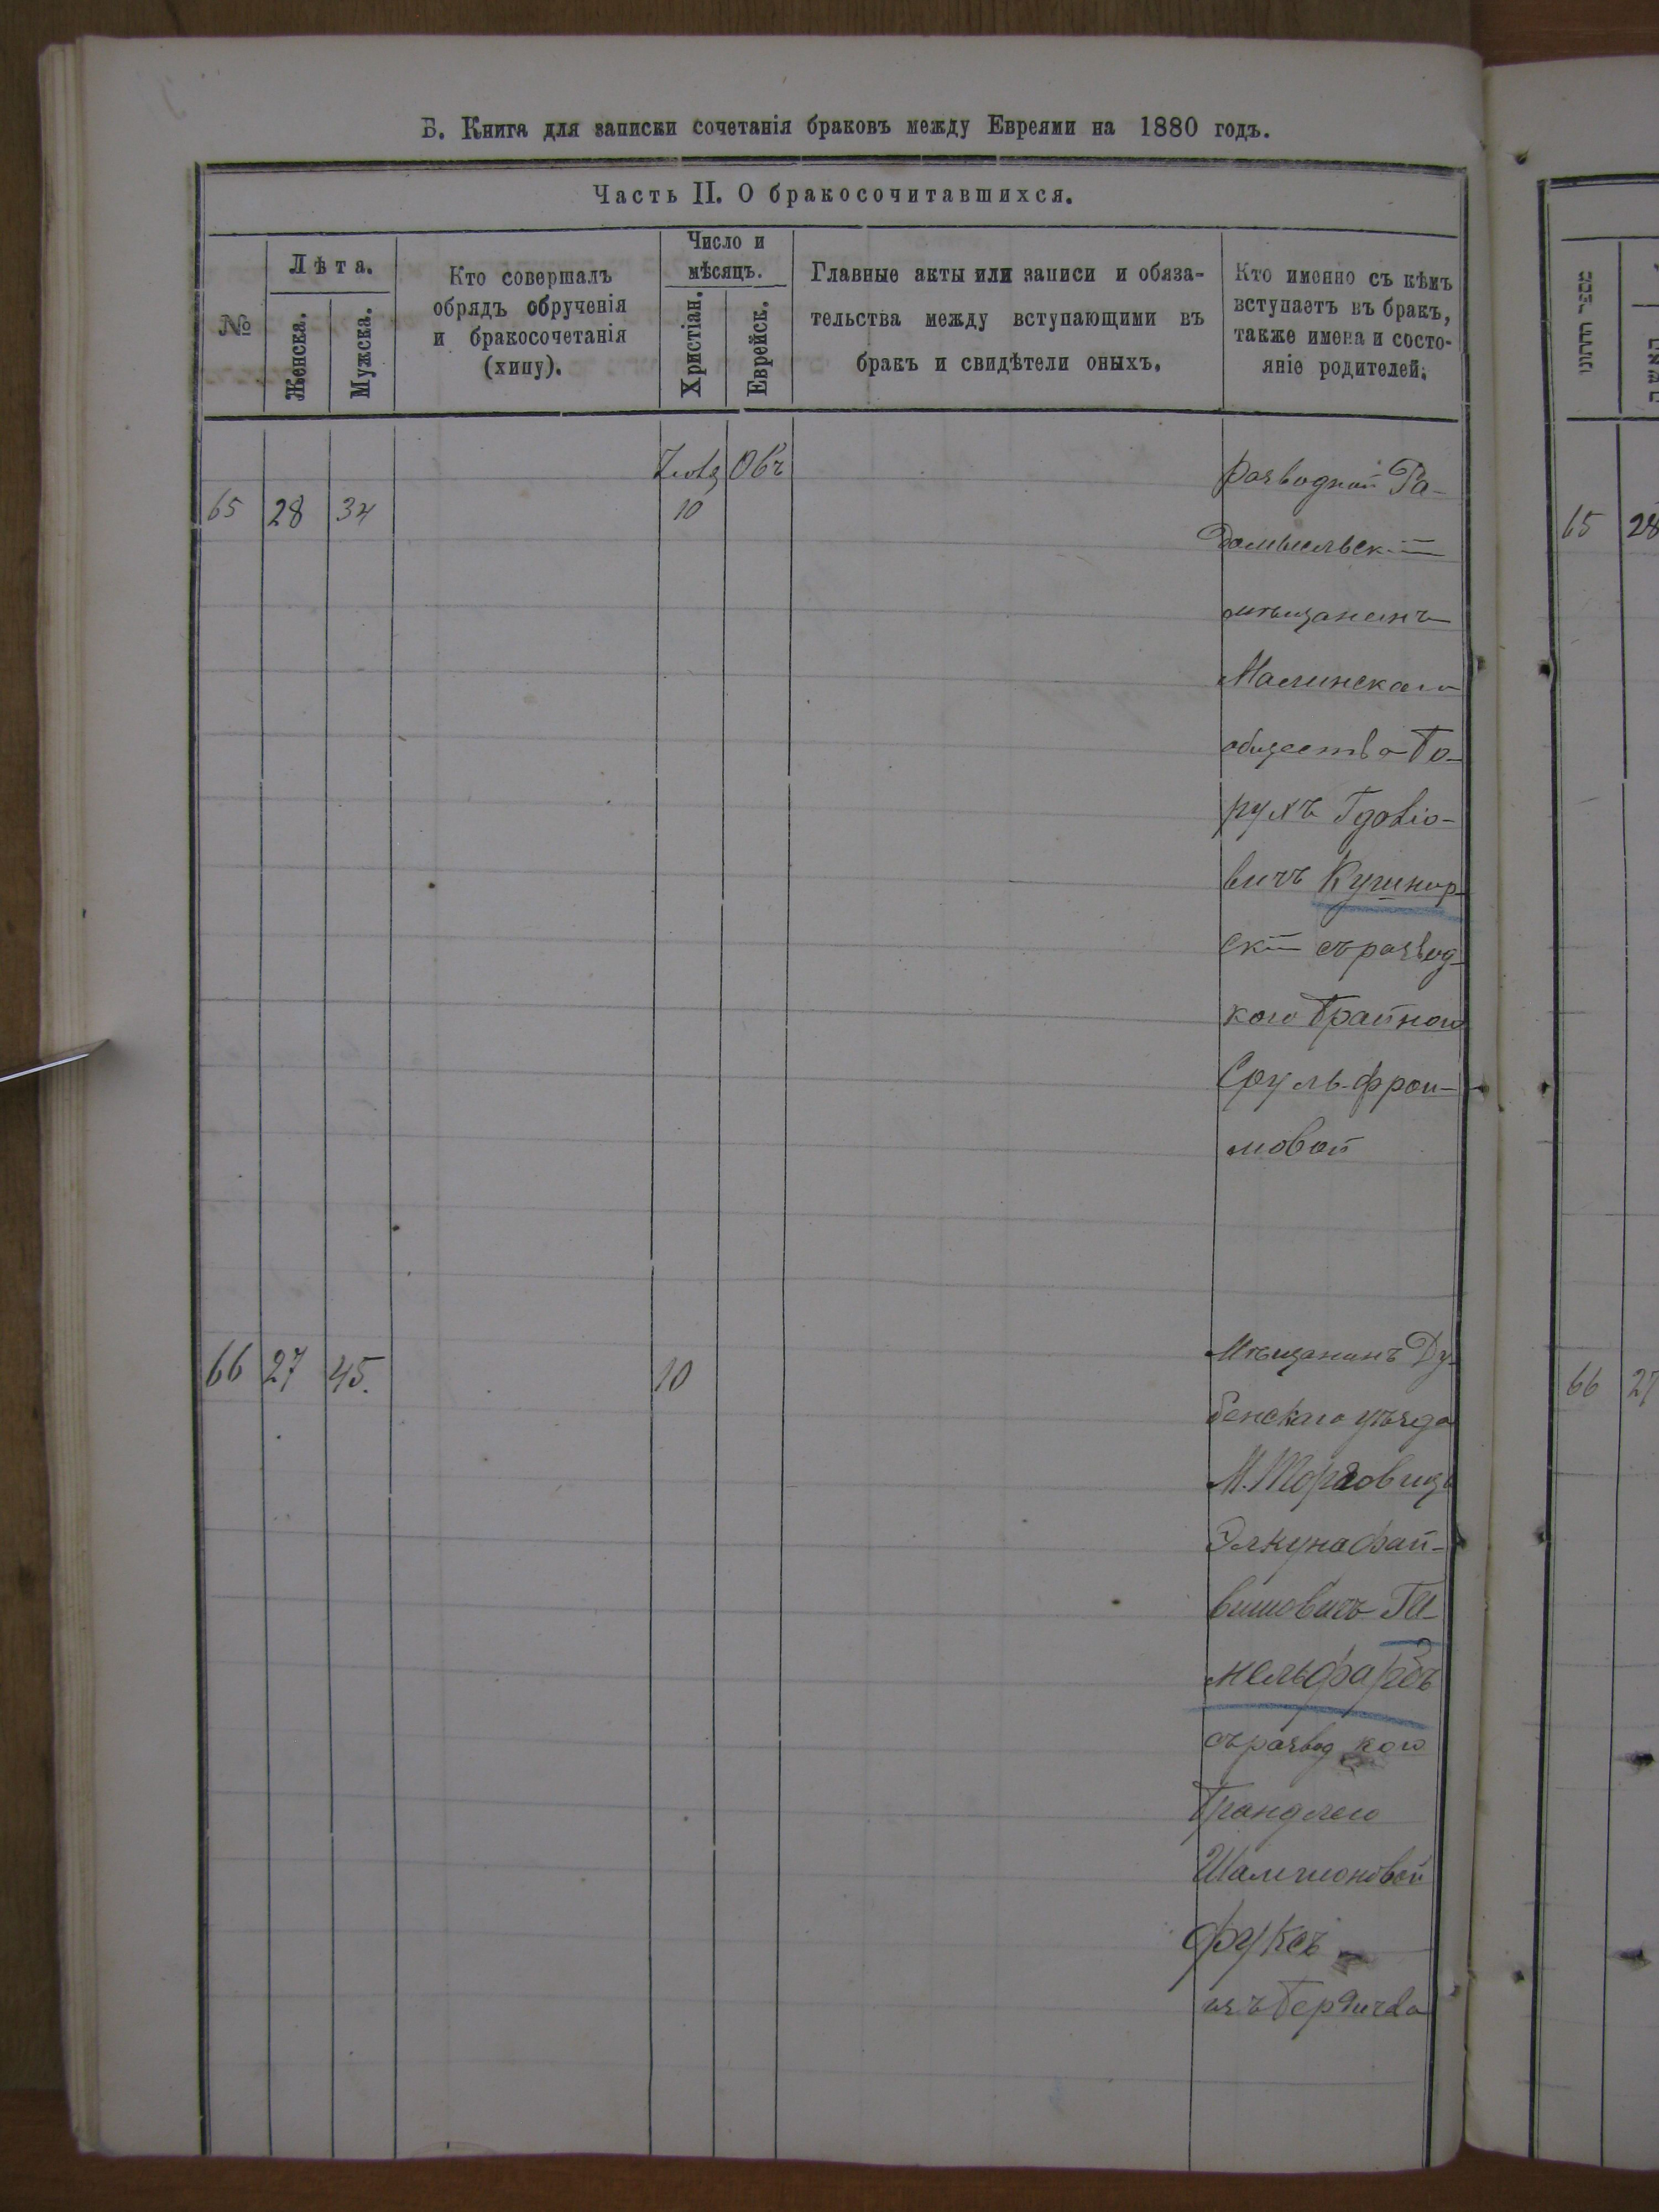 Б. Книга для записки сочетанія браковъ между Евреями на 1880 годъ.
Часть II. О бракосочитавшихся.
№
Лѣта.
Женска.
Мужска.
Кто совершалъ
обрядъ обрученія
и бракосочетанія
(хипу).
Число и
мѣсяцъ.
Христіан.
Еврейск.
Главные акты или записи и обяза-
тельства между вступающими въ
бракъ и свидѣтели оныхъ.
Кто именно съ кѣмъ
вступаетъ въ бракъ,
также имена и состо-
яніе родителей.
65 28 34 10
Разводной Ра-
домысльскій
мѣщанинъ
Малинскаго
общества Бо-
рухъ
вичъ Кушнир-
скій съ развод-
кою Брайною
Сруль-Фрои-
мовой
66 27 45. 10
Мѣщанинъ Ду-
бенскаго уѣзда
М. Торговицы
Элкуна Фай-
вишовичъ Ги-
мельфарбъ
съ развод кою
Брандлею
Шлимоновой
Фуксъ
изъ Бердичева
מספר החתונו
האשה
65 28
66 27